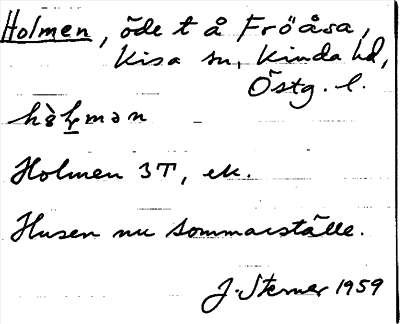 Holmen, öde t å Fröåsa,
Kisa sn, Kinda hd,
Östg. l.
Holmen 3T, ek.
Husen nu sommarställe.
J. Sterner 1959